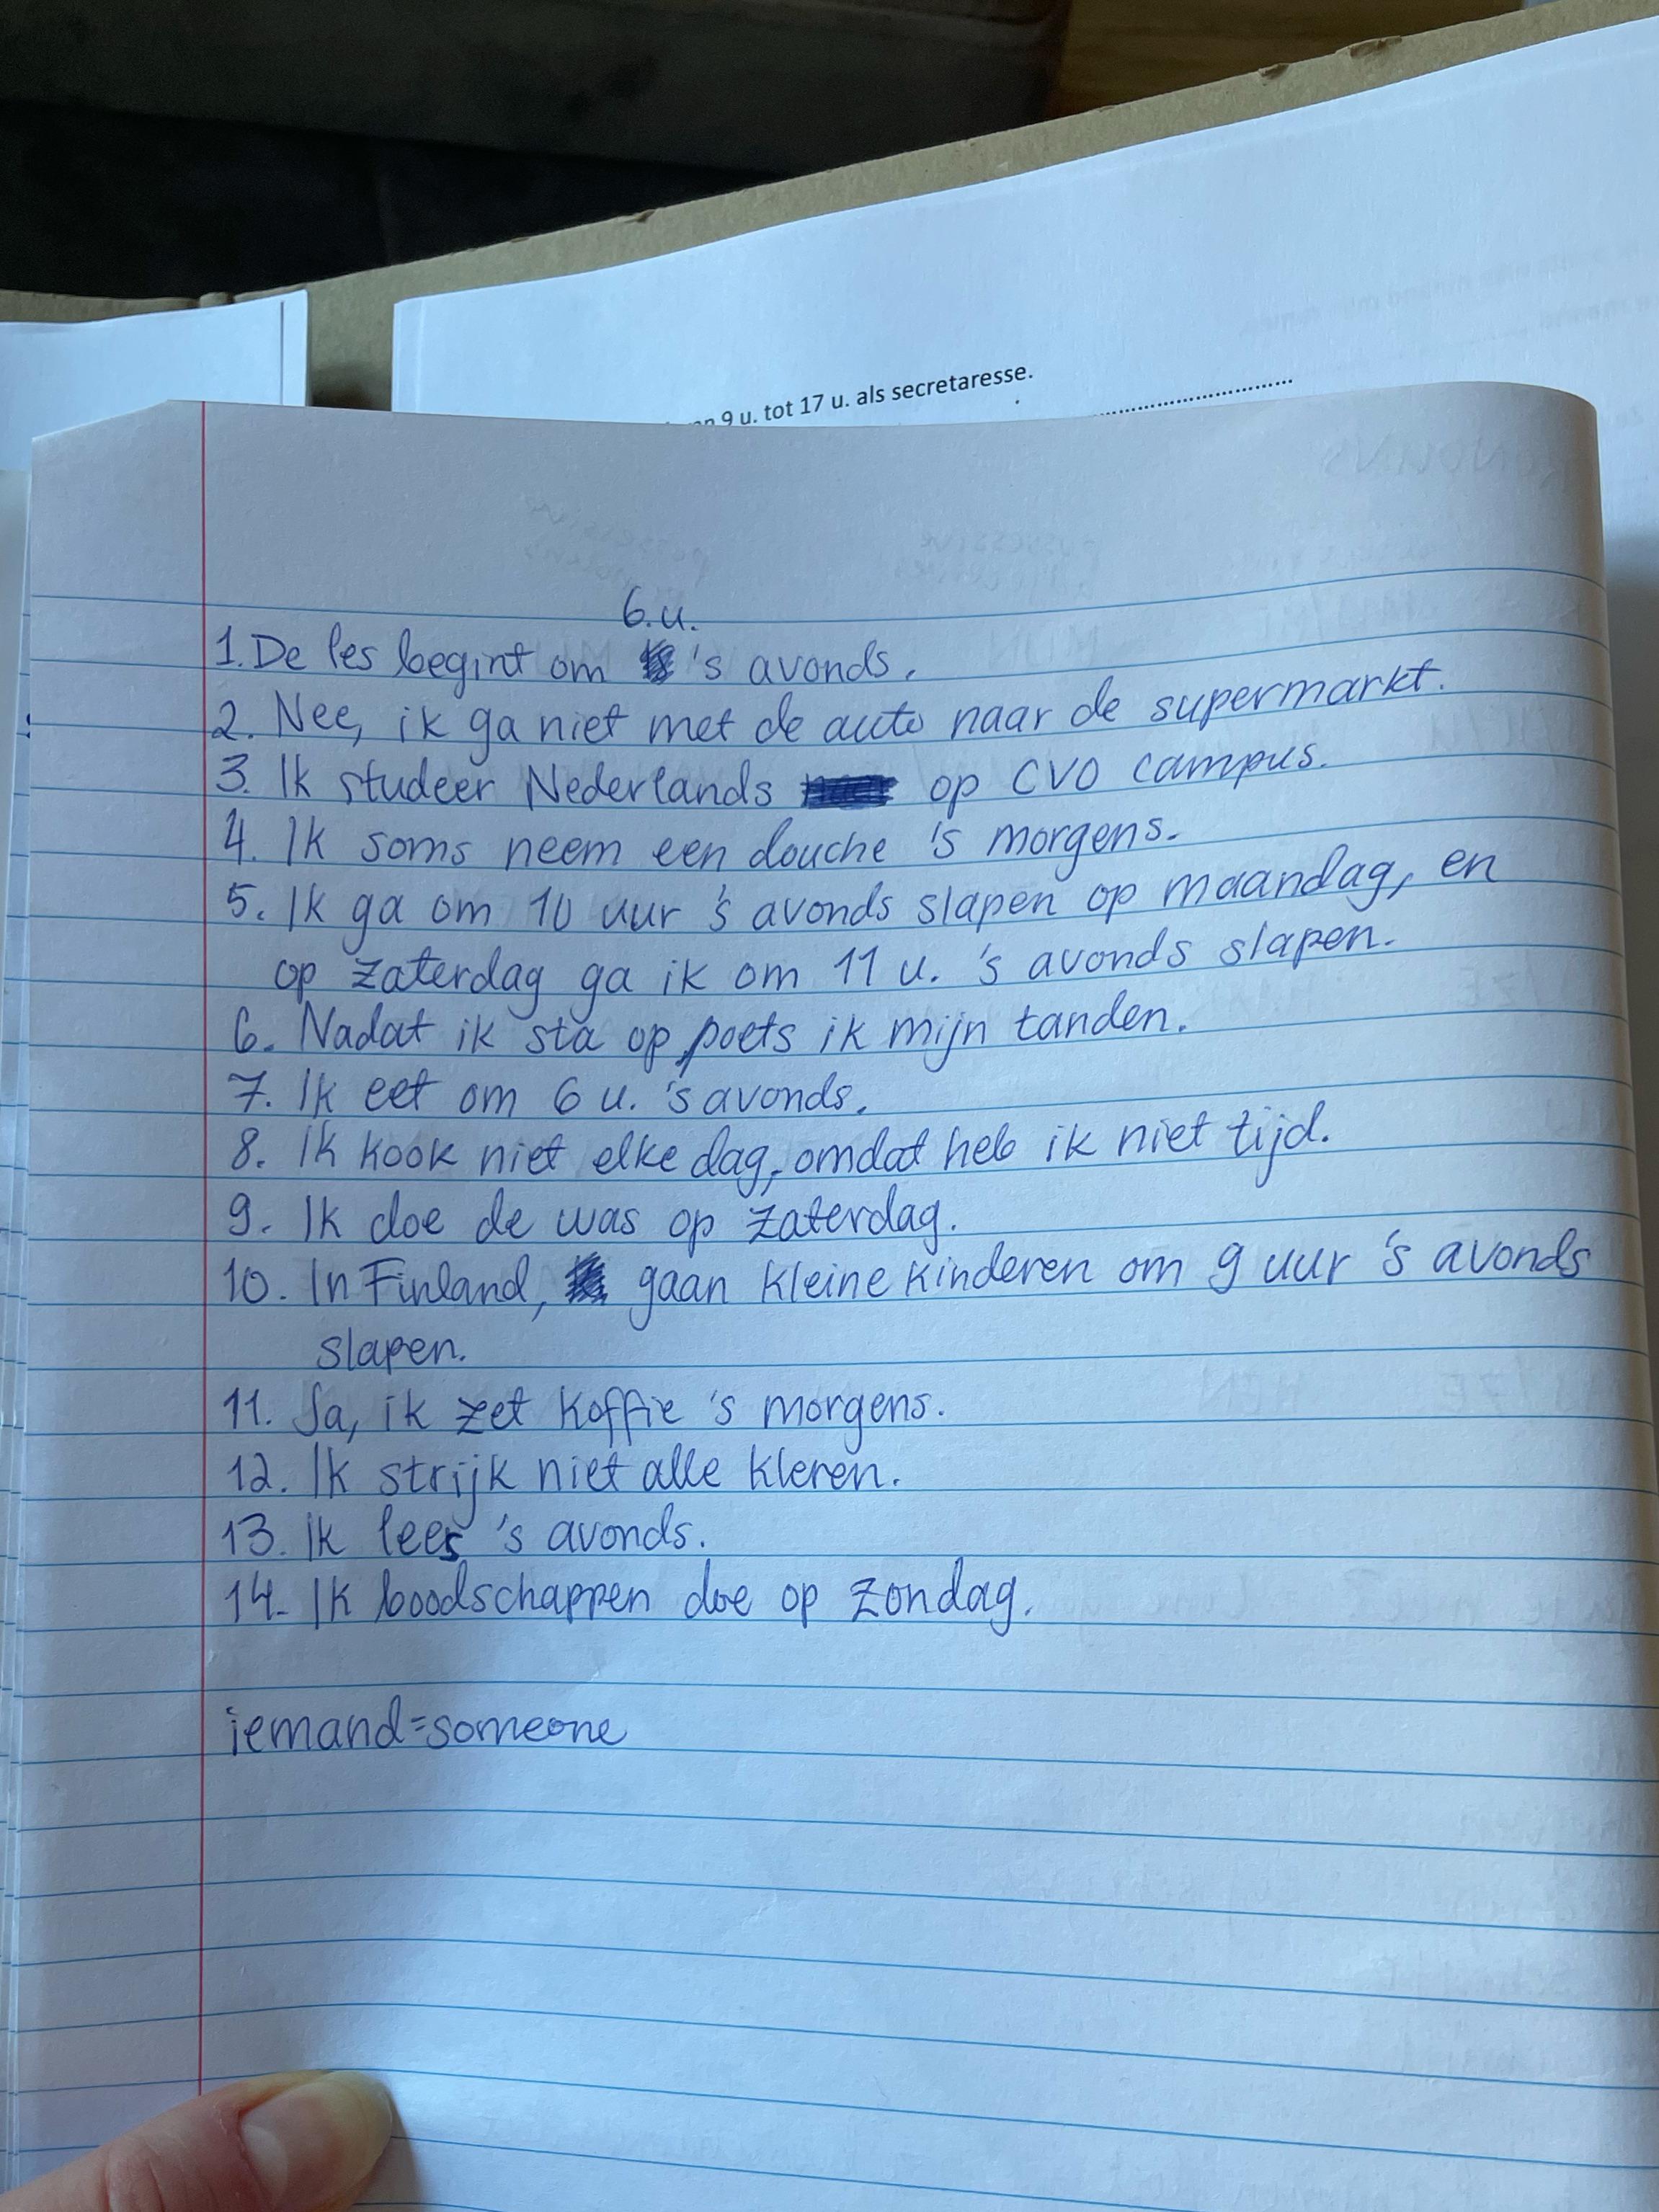 9 u. tot 17 u. als secretaresse.
6.u.
1. De les begint om 's avonds.
2. Nee, ik ga niet met de auto naar de supermarkt.
3. Ik studeer Nederlands op CVO campus.
4. Ik soms neem een douche 's morgens.
5. Ik ga om 10 uur 's avonds slapen op maandag, en
op zaterdag ga ik om 11 u. 's avonds slapen.
6. Nadat ik sta op, poets ik mijn tanden.
7. Ik eet om 6 u. 's avonds.
8. Ik kook niet elke dag, omdat heb ik niet tijd.
9. Ik doe de was op zaterdag.
10. In Finland, gaan kleine kinderen om 9 uur 's avonds
slapen.
11. Ja, ik zet koffie 's morgens.
12. Ik strijk niet alle kleren.
13. Ik lees 's avonds.
14. Ik boodschappen doe op zondag.
iemand=someone